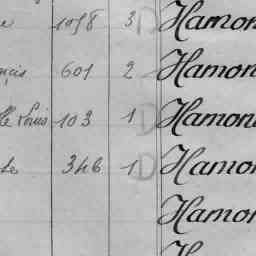 e 1058 3 D Hamon
çois 601 2 Hamon
lle Louis 103 1 D Hamon
346 1 D Hamon
Hamon